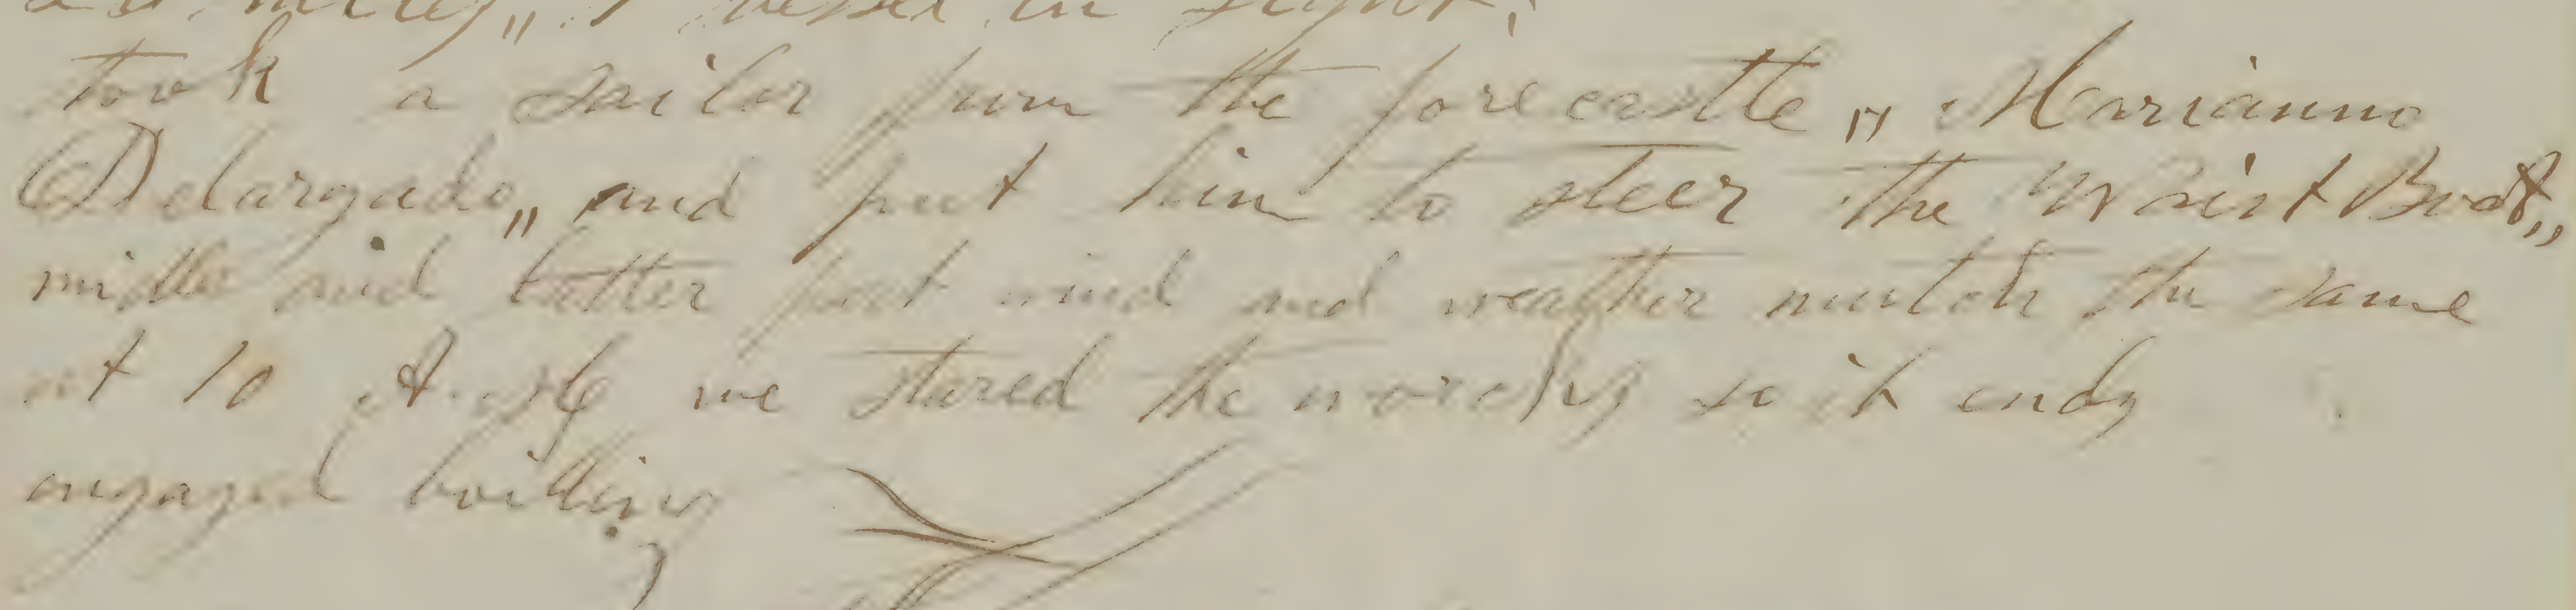 vessel in sight,
took a sailor from the forecastle „ Marianno
Delargado „ and put him to steer the Waist Boat „
middle and latter part wind and weather mutch the same
at 10 A. M. we stured the so it ends
engaged boilling